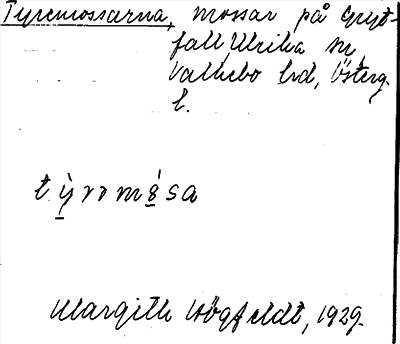 Tyremossarna, mossar på Gryt-
fall, Ulrika sn,
Valkebo hd, Österg.
l.
t ỳ̱ r r m ó̱ s a
Margith Högfeldt, 1929.